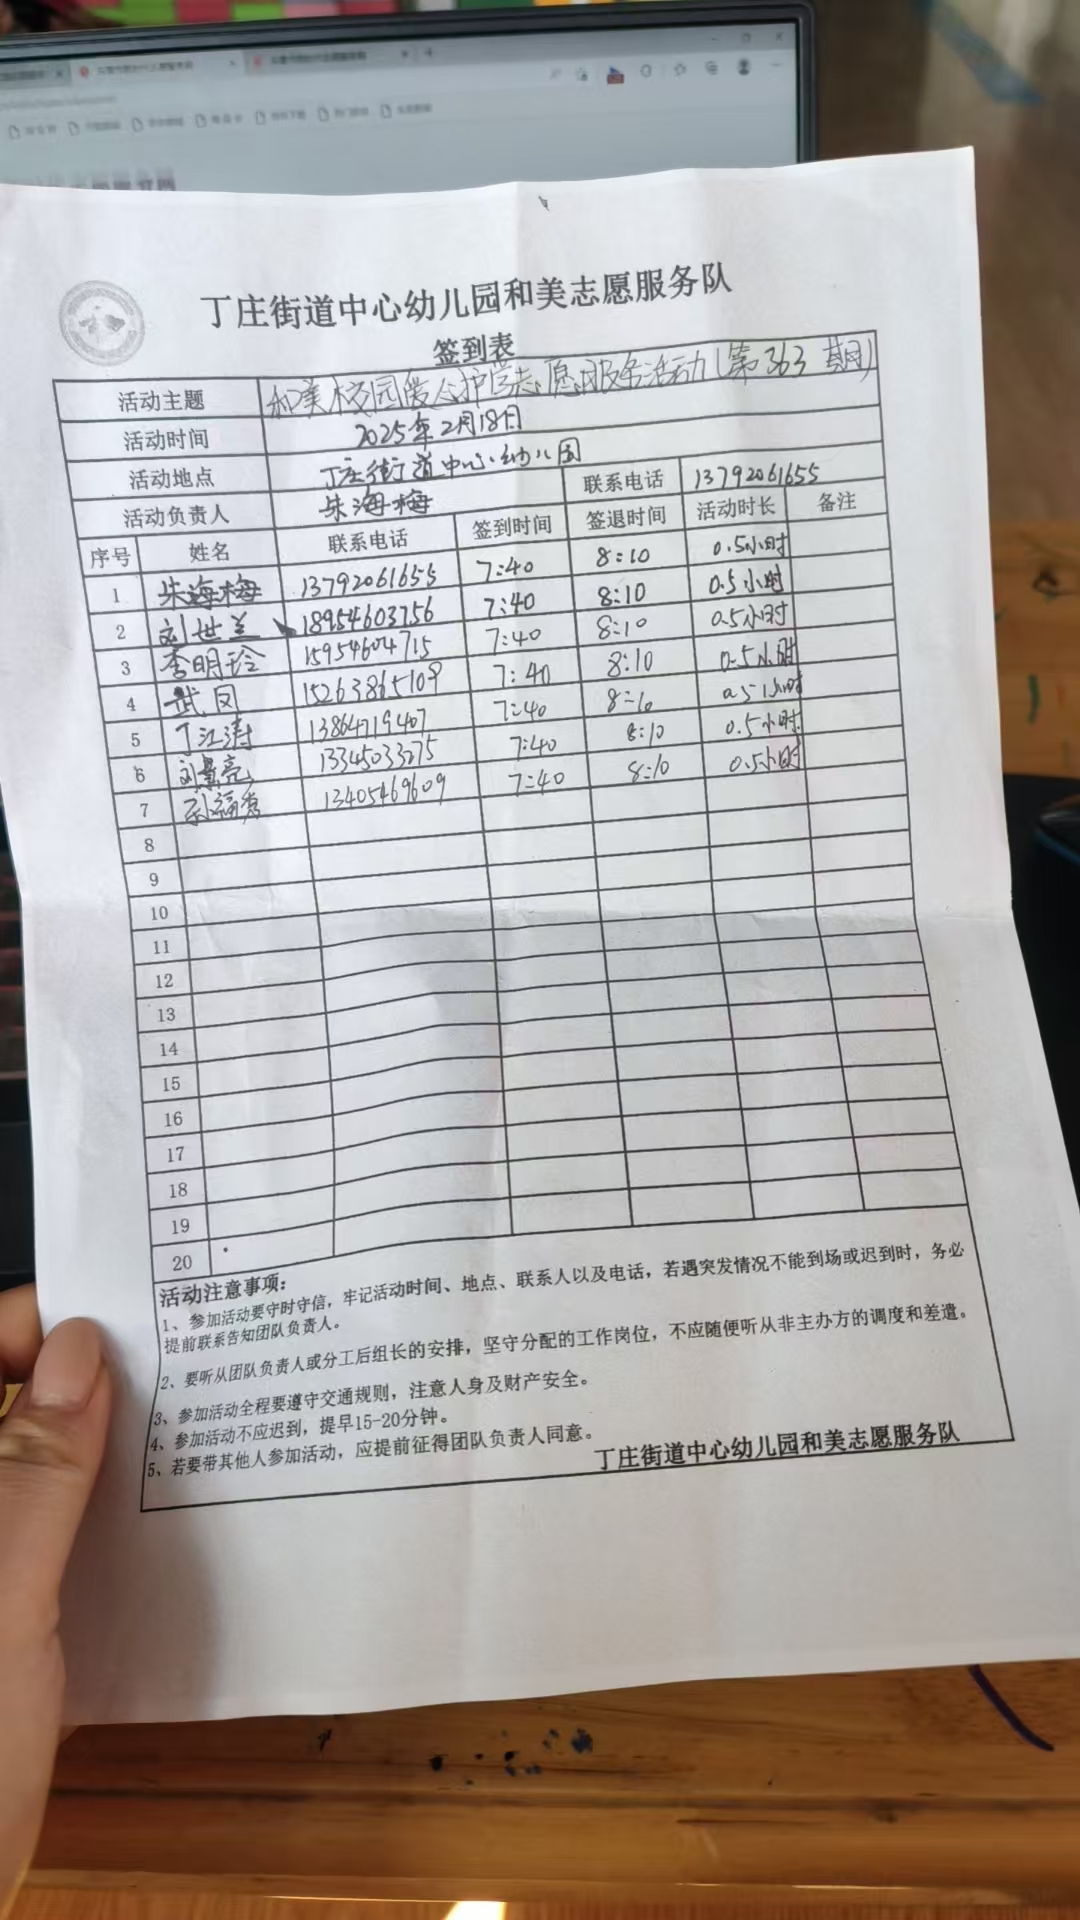 丁庄街道中心幼儿园和美志愿服务队
签到表
活动主题 和美校园爱心护学志愿服务活动(第363期)
活动时间 2025年2月18日
活动地点 丁庄街道中心幼儿园
活动负责人 朱海梅 联系电话 13792061655
序号 姓名 联系电话 签到时间 签退时间 活动时长 备注
1 朱海梅 13792061655 7:40 8:10 0.5小时
2 刘世兰 18954603756 7:40 8:10 0.5小时
3 李明玲 15954604715 7:40 8:10 0.5小时
4 武凤 15263865109 7:40 8:10 0.5小时
5 丁江涛 13864719407 7:40 8:10 0.5小时
6 刘景亮 13345033275 7:40 8:10 0.5小时
7 孙福秀 13405469609 7:40 8:10 0.5小时
8
9
10
11
12
13
14
15
16
17
18
19
20
活动注意事项:
1、参加活动要守时守信，牢记活动时间、地点、联系人以及电话，若遇突发情况不能到场或迟到时，务必
提前联系告知团队负责人。
2、要听从团队负责人或分工后组长的安排，坚守分配的工作岗位，不应随便听从非主办方的调度和差遣。
3、参加活动全程要遵守交通规则，注意人身及财产安全。
4、参加活动不应迟到，提早15-20分钟。
5、若要带其他人参加活动，应提前征得团队负责人同意。
丁庄街道中心幼儿园和美志愿服务队